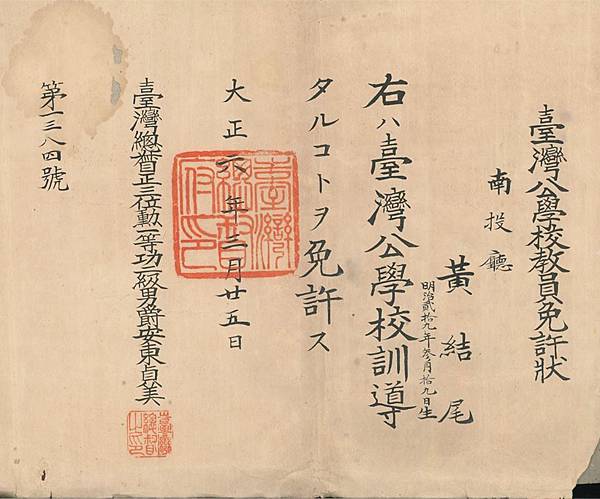 臺灣公學校教員免許狀
南投廳
黃結尾
明治貳拾九年參月拾九日生
右ハ臺灣公學校訓導
タルコトヲ免許ス
大正六年三月廿五日
臺灣總督府印
臺灣總督正三位勳一等功二級男爵安東貞美
臺灣總督之印
第一三八四號